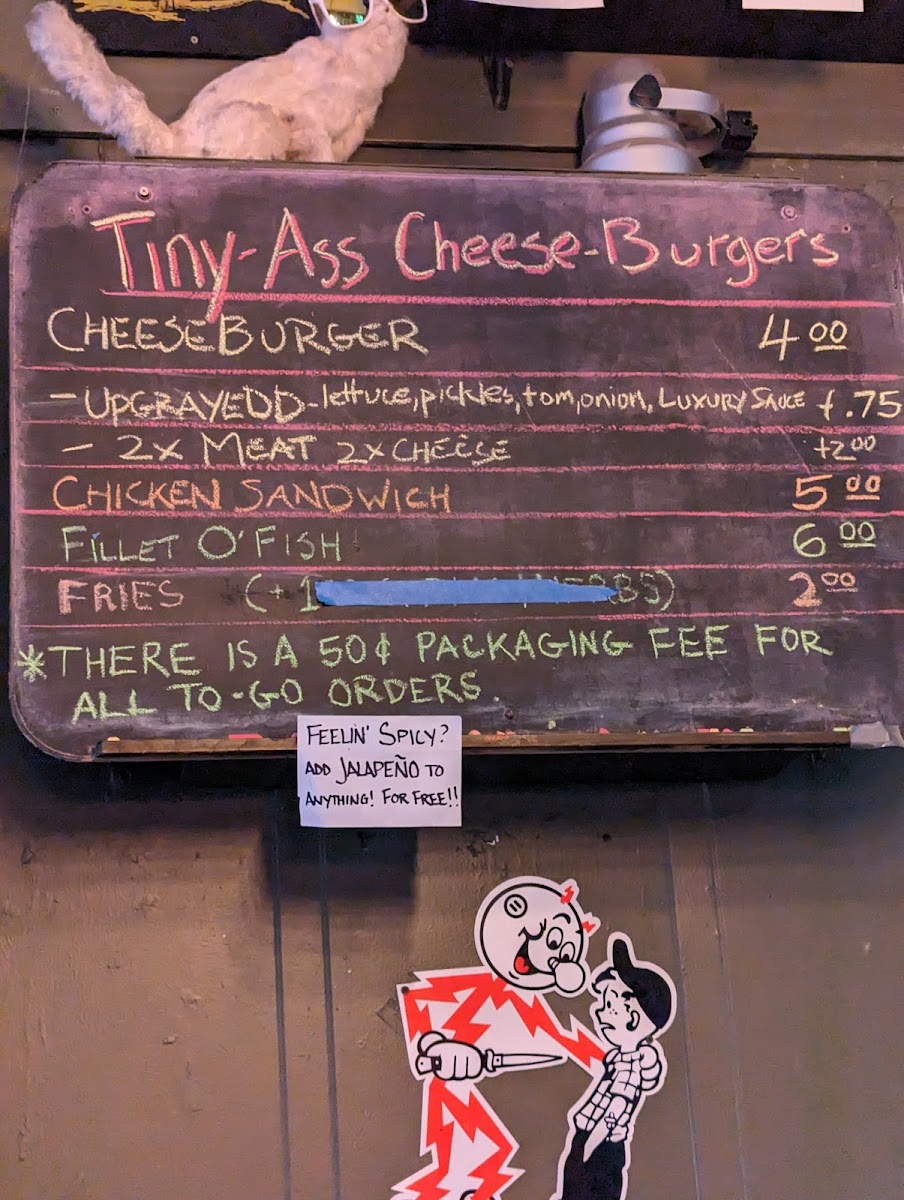 Tiny-Ass Cheese-Burgers
CHEESEBURGER 4.00
- UPGRAYEDD - lettuce, pickles, tom, onion, LUXURY SAUCE +.75
- 2X MEAT 2X CHEESE +2.00
CHICKEN SANDWICH 5.00
FILLET O'FISH 6.00
FRIES (+1 2.00
*THERE IS A 50¢ PACKAGING FEE FOR
ALL TO-GO ORDERS.
FEELIN' SPICY?
ADD JALAPEÑO TO
ANYTHING! FOR FREE!!